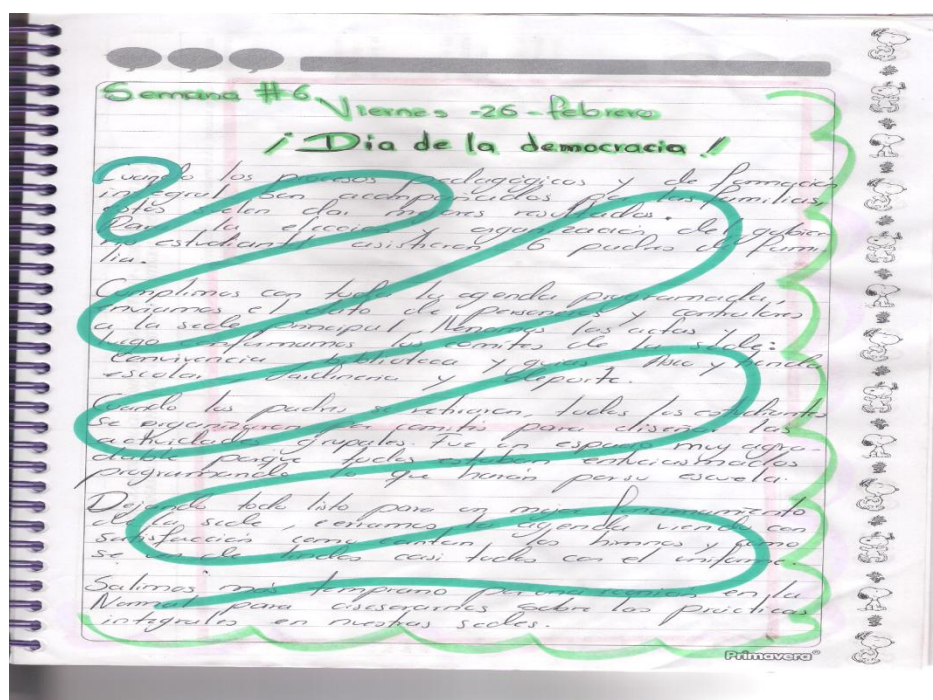 Semana #6
Viernes -26- febrero
¡Dia de la democracia!
Cuando los procesos pedagógicos y de formación
integral son acompañados por las familias,
éstos suelen dar mejores resultados.
Para la elección y organización del gobier
no estudiantil asistieron 6 padres de fami
lia.
Cumplimos con toda la agenda programada,
enviamos el dato de personeros y contralores
a la sede principal, llenamos las actas y
luego conformamos los comites de la sede:
Convivencia, biblioteca y guias, Aseo y tienda
escolar, Jardineria y deporte.
Cuando los padres se retiraron, todos los estudiantes
se organizaron por comités para diseñar las
actividades grupales. Fue un espacio muy agra-
dable porque todos estaban entusiasmados
programando lo que harán por su escuela.
Dejando todo listo para un mejor funcionamiento
de la sede, cerramos la agenda viendo con
satisfacción como cantan los himnos y como
se ven de lindos casi todos con el uniforme.
Salimos más temprano por una reunion en la
Normal para asesorarnos sobre las prácticas
integrales en nuestras sedes.
Primavera®